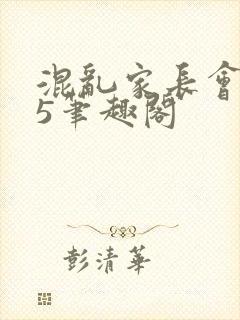 混亂家長會
5筆趣閣
彭清華